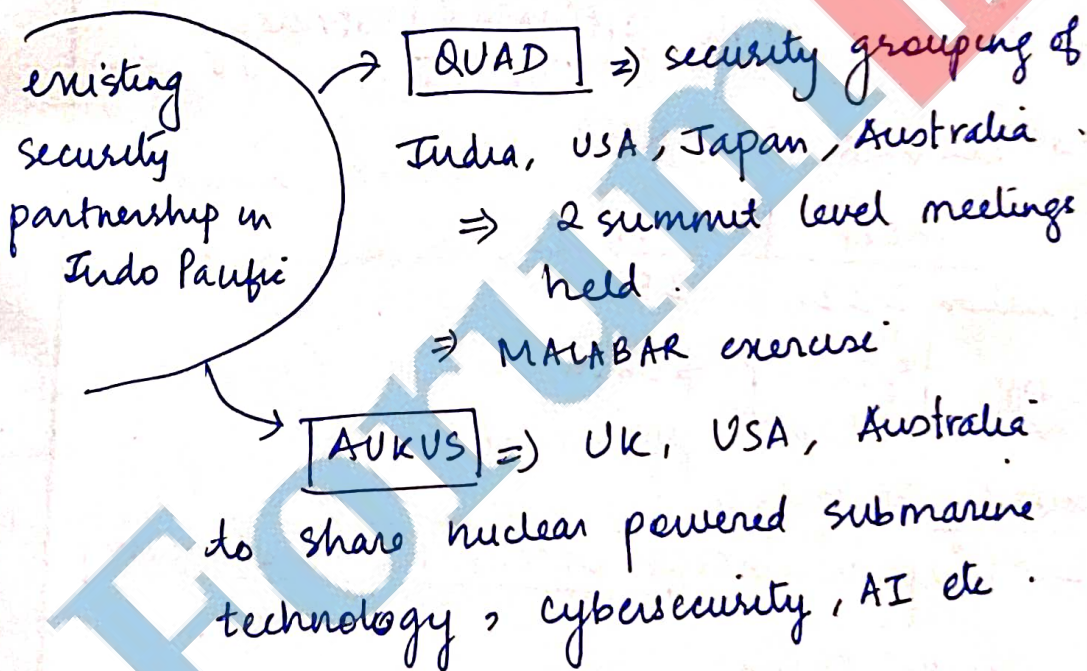 existing
security
partnership in
Indo Pacific
QUAD => security grouping of
India, USA, Japan, Australia.
=> 2 summit level meetings
held.
=> MALABAR exercise
AUKUS => UK, USA, Australia
to share nuclear powered submarine
technology, cybersecurity, AI etc.
Forum